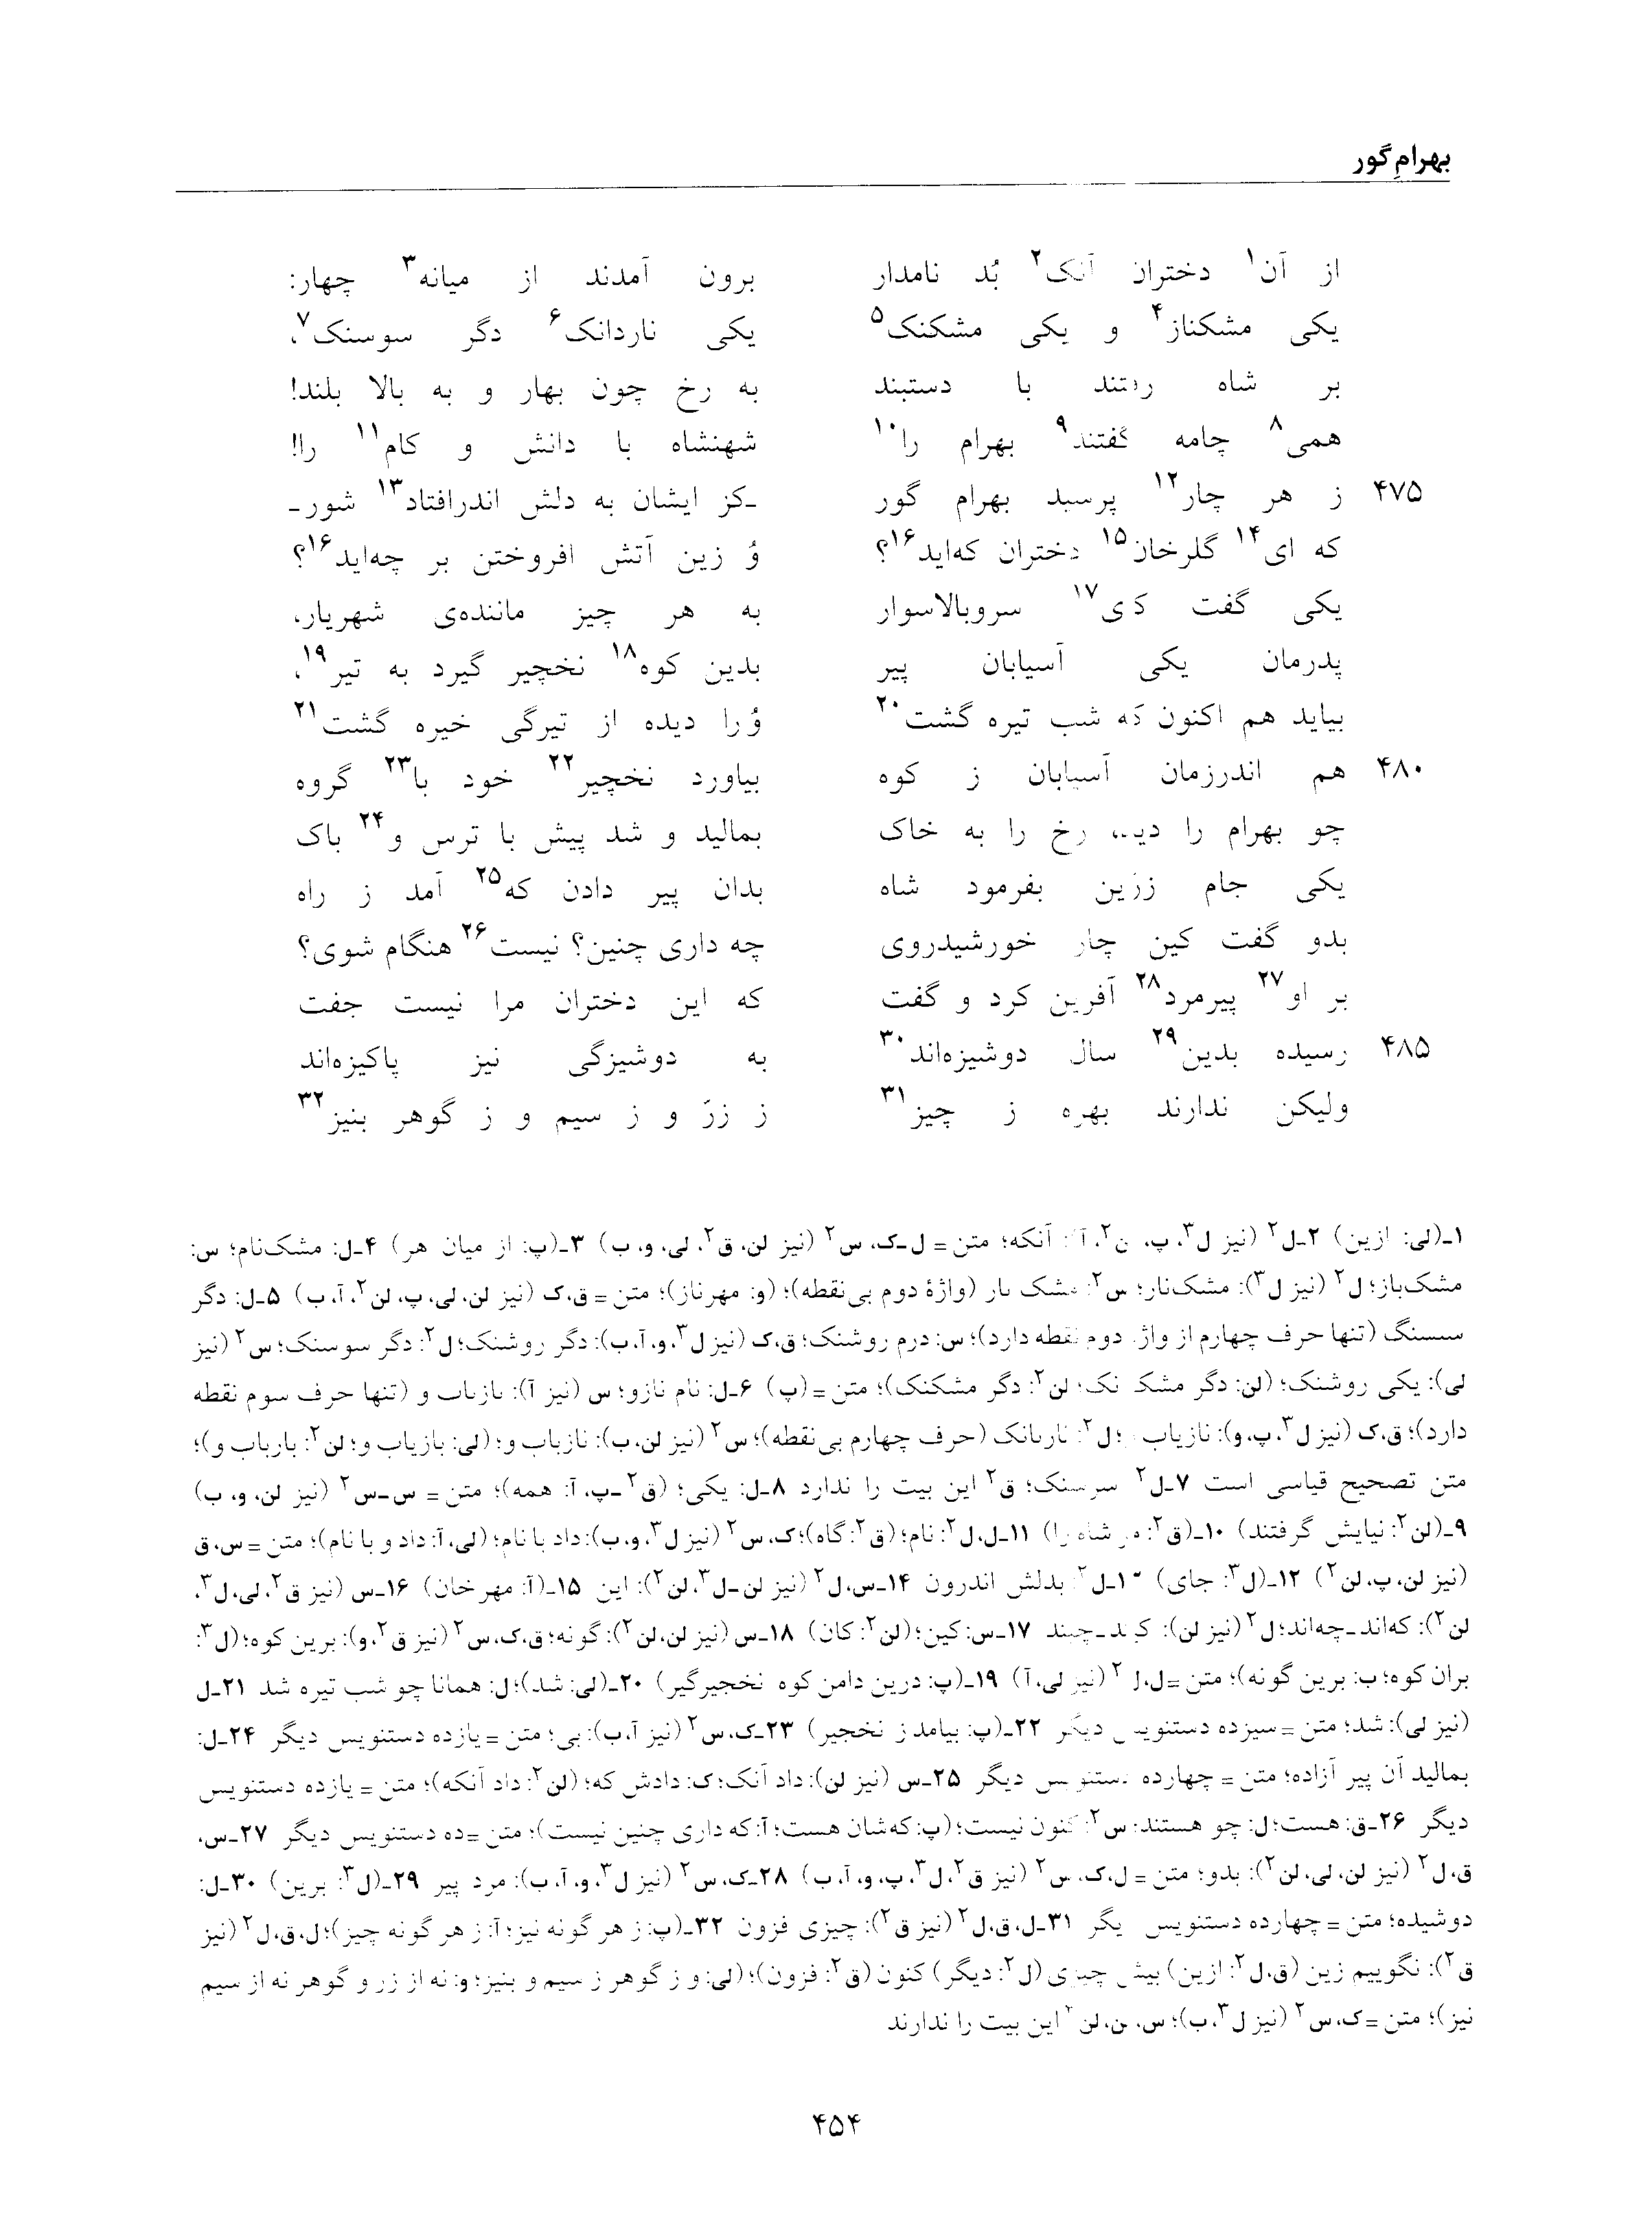 بهرامِ گور
از آن۱ دختران آنک۲ بُد نامدار برون آمدند از میانه۳ چهار:
یکی مشکناز۴ و یکی مشکنک۵ یکی ناردانک۶ دگر سوسنک۷،
بر شاه رفتند با دستبند به رخ چون بهار و به بالا بلند!
همی۸ چامه گفتند۹ بهرام را۱۰ شهنشاه با دانش و کام۱۱ را!
۴۷۵ ز هر چار۱۲ پرسید بهرام گور ـکز ایشان به دلش اندرافتاد۱۳ شورـ
که ای۱۴ گلرخان۱۵ دختران که‌اید۱۶؟ وُ زین آتش افروختن بر چه‌اید۱۶؟
یکی گفت کای۱۷ سروبالاسوار به هر چیز ماننده‌ی شهریار،
پدرمان یکی آسیابان پیر بدین کوه۱۸ نخچیر گیرد به تیر۱۹،
بیاید هم اکنون که شب تیره گشت۲۰ وُرا دیده از تیرگی خیره گشت۲۱
۴۸۰ هم اندرزمان آسیابان ز کوه بیاورد نخچیر۲۲ خود با۲۳ گروه
چو بهرام را دید، رخ را به خاک بمالید و شد پیش با ترس و۲۴ باک
یکی جام زرّین بفرمود شاه بدان پیر دادن که۲۵ آمد ز راه
بدو گفت کین چار خورشیدروی چه داری چنین؟ نیست۲۶ هنگام شوی؟
بر او۲۷ پیرمرد۲۸ آفرین کرد و گفت که این دختران مرا نیست جفت
۴۸۵ رسیده بدین۲۹ سال دوشیزه‌اند۳۰ به دوشیزگی نیز پاکیزه‌اند
ولیکن ندارند بهره ز چیز۳۱ ز زرّ و ز سیم و ز گوهر بنیز۳۲
۱ـ(لی: ازین) ۲ـل۲ (نیز ل۳، پ، لن۲، آ): آنکه؛ متن = ل‌ـک، س۲ (نیز لن، ق۲، لی، و، ب) ۳ـ(پ: از میان هر) ۴ـل: مشک‌نام؛ س:
مشک‌باز؛ ل۲ (نیز ل۳): مشک‌نار؛ س۲: مشک بار (واژهٔ دوم بی‌نقطه)؛ (و: مهرناز)؛ متن = ق، ک (نیز لن، لی، پ، لن۲، آ، ب) ۵ـل: دگر
سسنگ (تنها حرف چهارم از واژه دوم نقطه دارد)؛ س: درم روشنک؛ ق، ک (نیز ل۳، و، آ، ب): دگر روشنک؛ ل۲: دگر سوسنک؛ س۲ (نیز
لی): یکی روشنک؛ (لن: دگر مشک نک؛ لن۲: دگر مشکنک)؛ متن = (پ) ۶ـل: نام نازو؛ س (نیز آ): بازباب و (تنها حرف سوم نقطه
دارد)؛ ق، ک (نیز ل۳، پ، و): نازیاب و؛ ل۲: تاربانک (حرف چهارم بی‌نقطه)؛ س۲ (نیز لن، ب): نازباب و؛ (لی: بازیاب و؛ لن۲: بارباب و)؛
متن تصحیح قیاسی است ۷ـل۲: سرسنک؛ ق۲ این بیت را ندارد ۸ـل: یکی؛ (ق۲ـپ، آ: همه)؛ متن = س‌ـس۲ (نیز لن، و، ب)
۹ـ(لن۲: نیایش گرفتند) ۱۰ـ(ق۲: مر شاه را) ۱۱ـل، ل۲: نام؛ (ق۲: گاه)؛ ک، س۲ (نیز ل۳، و، ب): داد با نام؛ (لی، آ: داد و با نام)؛ متن = س، ق
(نیز لن، پ، لن۲) ۱۲ـ(ل۳: جای) ۱۳ـل۲: بدلش اندرون ۱۴ـس، ل۲ (نیز لن‌ـل۳، لن۲): این ۱۵ـ(آ: مهرخان) ۱۶ـس (نیز ق۲، لی، ل۳،
لن۲): که‌اندـچه‌اند؛ ل۲ (نیز لن): کیندـچیند ۱۷ـس: کین؛ (لن۲: کان) ۱۸ـس (نیز لن، لن۲): گونه؛ ق، ک، س۲ (نیز ق۲، و): برین کوه؛ (ل۳:
بران کوه؛ ب: برین گونه)؛ متن = ل، ل۲ (نیز لی، آ) ۱۹ـ(پ: درین دامن کوه نخجیرگیر) ۲۰ـ(لی: شد)؛ ل: همانا چو شب تیره شد ۲۱ـل
(نیز لی): شد؛ متن = سیزده دستنویس دیگر ۲۲ـ(پ: بیامد ز نخجیر) ۲۳ـک، س۲ (نیز آ، ب): بی؛ متن = یازده دستنویس دیگر ۲۴ـل:
بمالید آن پیر آزاده؛ متن = چهارده دستنویس دیگر ۲۵ـس (نیز لن): داد آنک؛ ک: دادش که؛ (لن۲: داد آنکه)؛ متن = یازده دستنویس
دیگر ۲۶ـق: هست؛ ل: چو هستند؛ س۲: کنون نیست؛ (پ: که‌شان هست؛ آ: که داری چنین نیست)؛ متن = ده دستنویس دیگر ۲۷ـس،
ق، ل۲ (نیز لن، لی، لن۲): بدو؛ متن = ل، ک، س۲ (نیز ق۲، ل۳، پ، و، آ، ب) ۲۸ـک، س۲ (نیز ل۳، و، آ، ب): مرد پیر ۲۹ـ(ل۳: برین) ۳۰ـل:
دوشیده؛ متن = چهارده دستنویس دیگر ۳۱ـل، ق، ل۲ (نیز ق۲): چیزی فزون ۳۲ـ(پ: ز هر گونه نیز؛ آ: ز هر گونه چیز)؛ ل، ق، ل۲ (نیز
ق۲): نگوییم زین (ق، ل۲: ازین) بیش چیزی (ل۲: دیگر) کنون (ق۲: فزون)؛ (لی: و ز گوهر ز سیم و بنیز؛ و: نه از زر و گوهر نه از سیم
نیز)؛ متن = ک، س۲ (نیز ل۳، ب)؛ س، لن، لن۲ این بیت را ندارند
۴۵۴